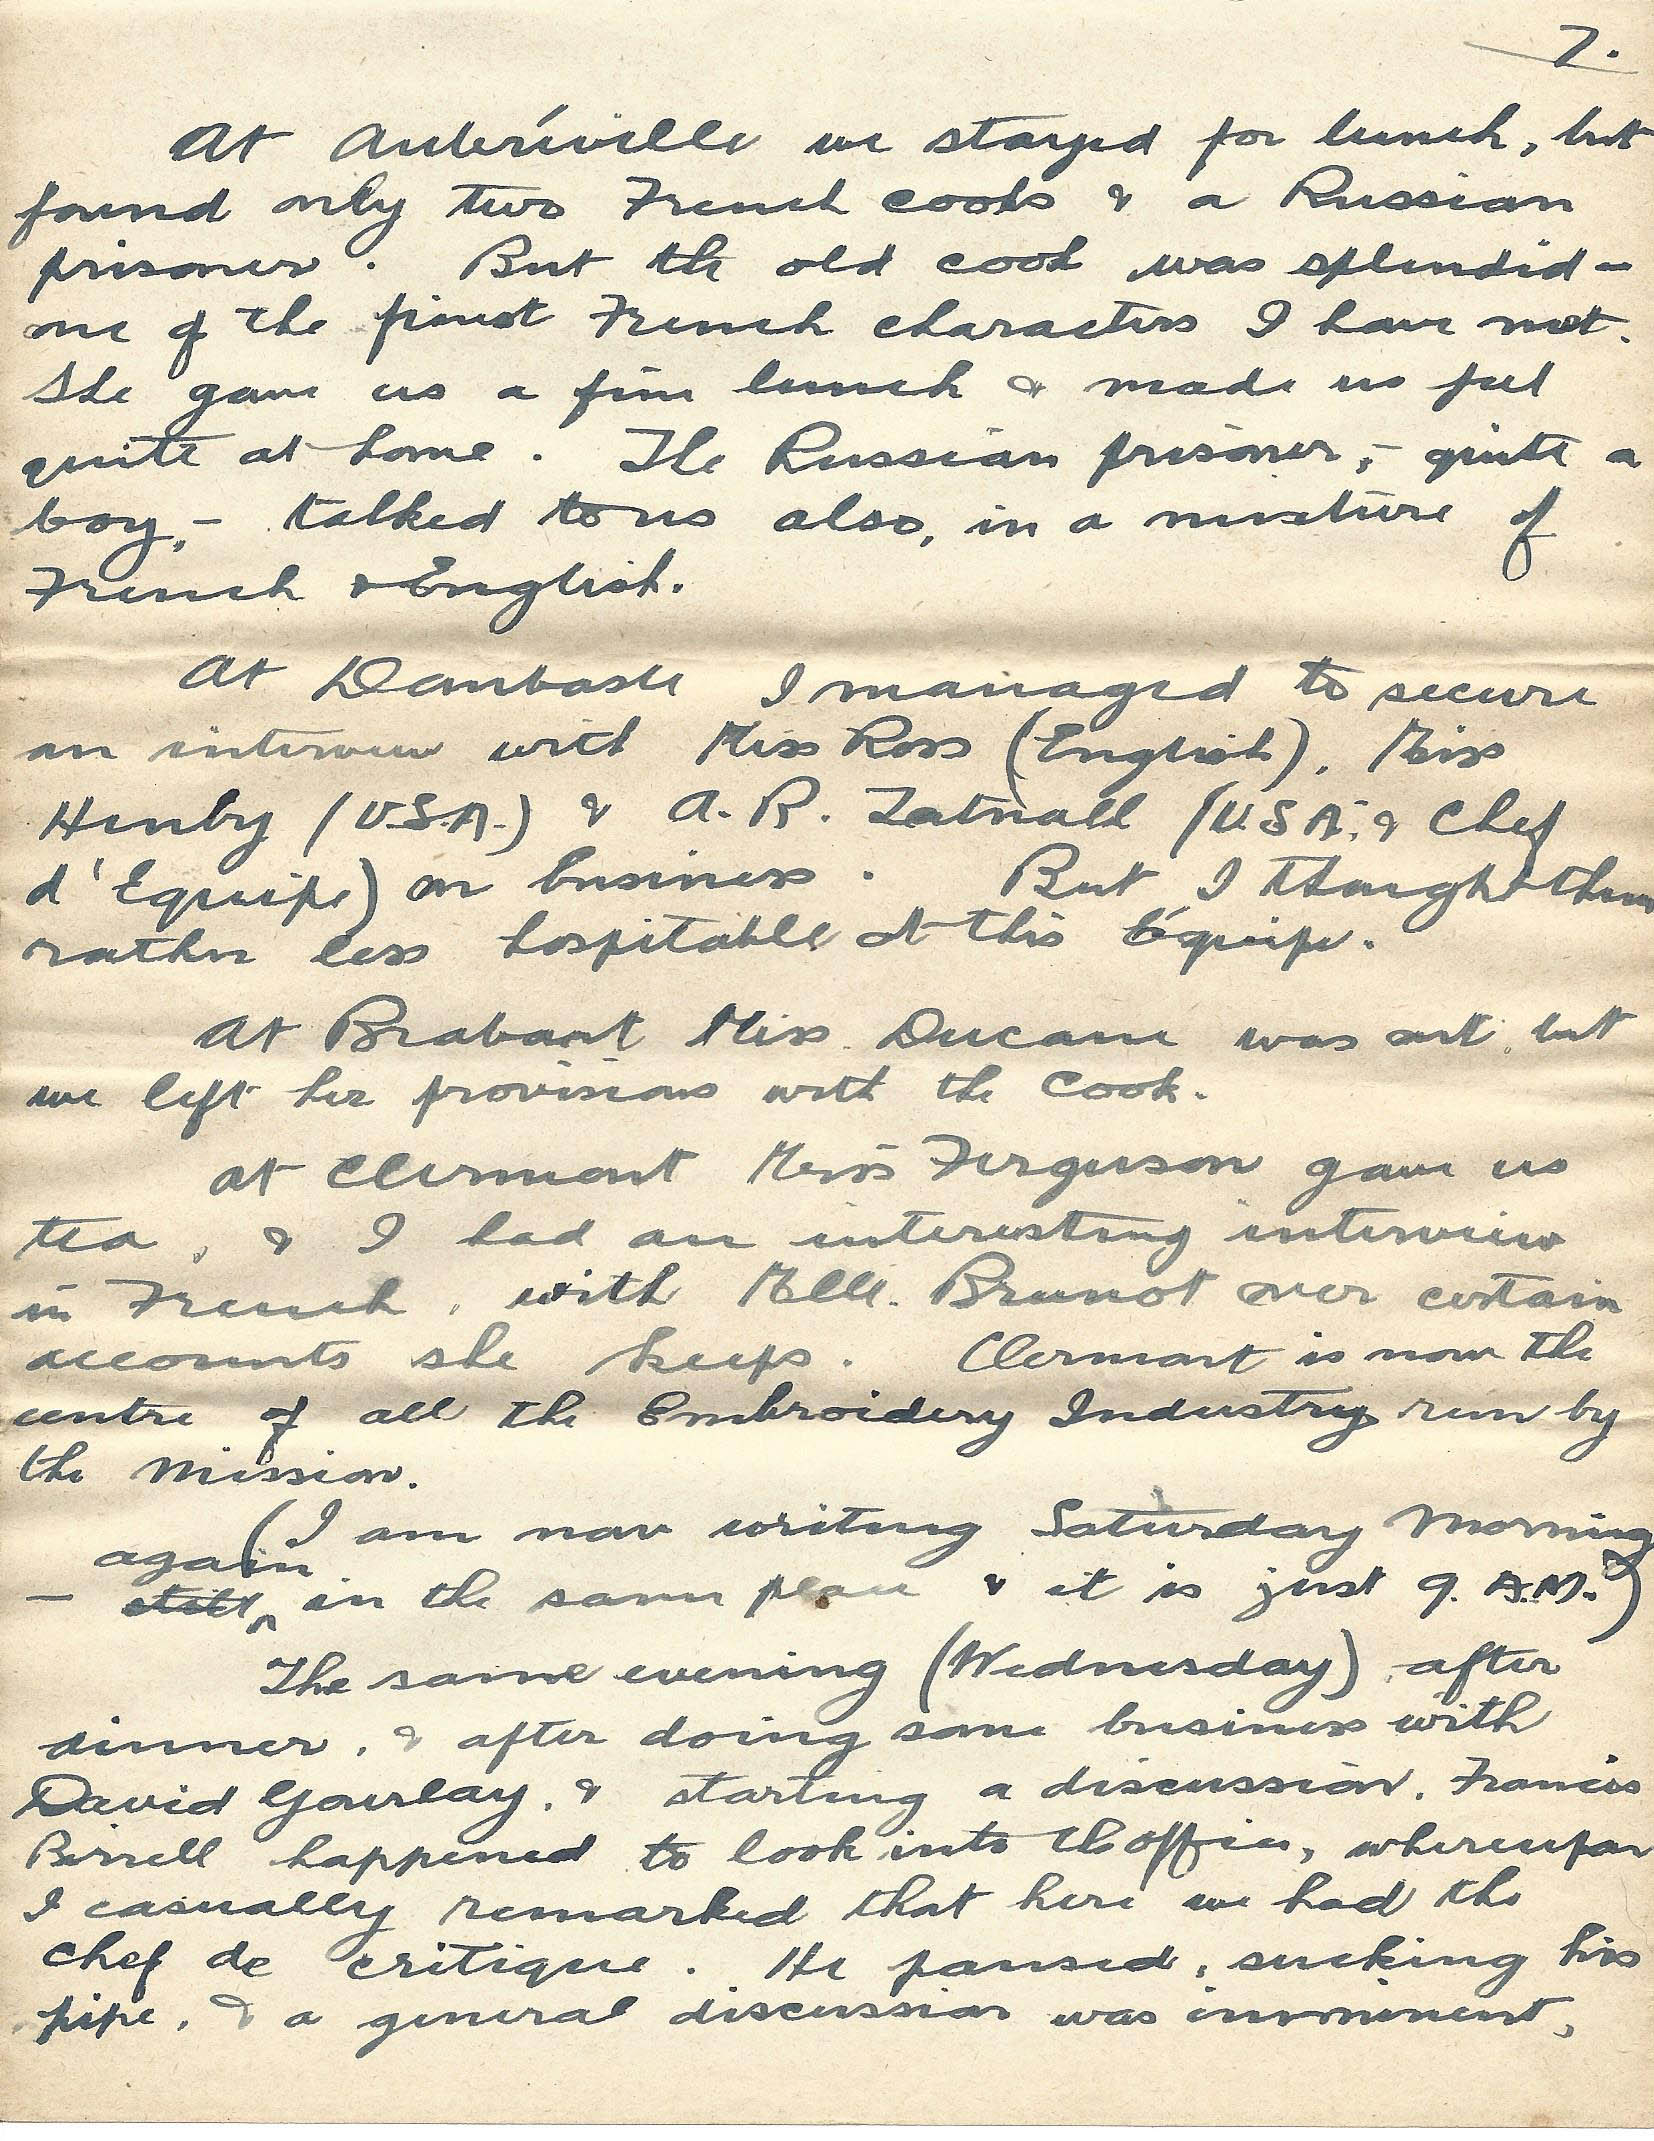 7.
At Aubréville we stayed for lunch, but
found only two French cooks & a Russian
prisoner. But the old cook was splendid –
one of the finest French characters I have met.
She gave us a fine lunch & made us feel
quite at home. The Russian prisoner, – quite a
boy, – talked to us also, in a mixture of
French & English.
At Dombasle I managed to secure
an interview with Miss Ross (English), Miss
Henby (U.S.A.) & A. R. Tatnall (U.S.A., & Chef
d'Equipe) on business. But I thought them
rather less hospitable at this Équipe.
At Brabant Miss Ducane was out, but
we left her provisions with the Cook.
At Clermont Miss Ferguson gave us
tea, & I had an interesting interview
in French, with Melle. Brunot over certain
accounts she keeps. Clermont is now the
centre of all the Embroidery Industry run by
the Mission.
(I am now writing Saturday Morning
again
– still in the same place & it is just 9. A.M.)
The same evening (Wednesday) after
dinner, & after doing some business with
David Gourlay, & starting a discussion, Francis
Birrell happened to look into the office, whereupon
I casually remarked that here we had the
chef de critique. He paused, sucking his
pipe, & a general discussion was imminent,